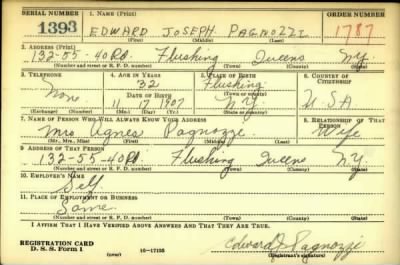 SERIAL NUMBER 1. NAME (Print) ORDER NUMBER
1393 EDWARD JOSEPH PAGNOZZI 1787
(First) (Middle) (Last)
2. ADDRESS (Print)
132-55-40 Rd. Flushing Queens NY
(Number and street or R. F. D. number) (Town) (County) (State)
3. TELEPHONE 4. AGE IN YEARS 5. PLACE OF BIRTH 6. COUNTRY OF CITIZENSHIP
32 Flushing
None DATE OF BIRTH (Town or county)
11 17 1907 N.Y. USA
(Exchange) (Number) (Mo.) (Day) (Yr.) (State or country)
7. NAME OF PERSON WHO WILL ALWAYS KNOW YOUR ADDRESS 8. RELATIONSHIP OF THAT PERSON
Mrs Agnes Pagnozzi Wife
(Mr., Mrs., Miss) (First) (Middle) (Last)
9. ADDRESS OF THAT PERSON
132-55-40 Rd. Flushing Queens NY
(Number and street or R. F. D. number) (Town) (County) (State)
10. EMPLOYER'S NAME
Self
11. PLACE OF EMPLOYMENT OR BUSINESS
Same
(Number and street or R. F. D. number) (Town) (County) (State)
I AFFIRM THAT I HAVE VERIFIED ABOVE ANSWERS AND THAT THEY ARE TRUE.
REGISTRATION CARD
D. S. S. Form 1 (over) 16-17105 Edward J Pagnozzi
(Registrant's signature)